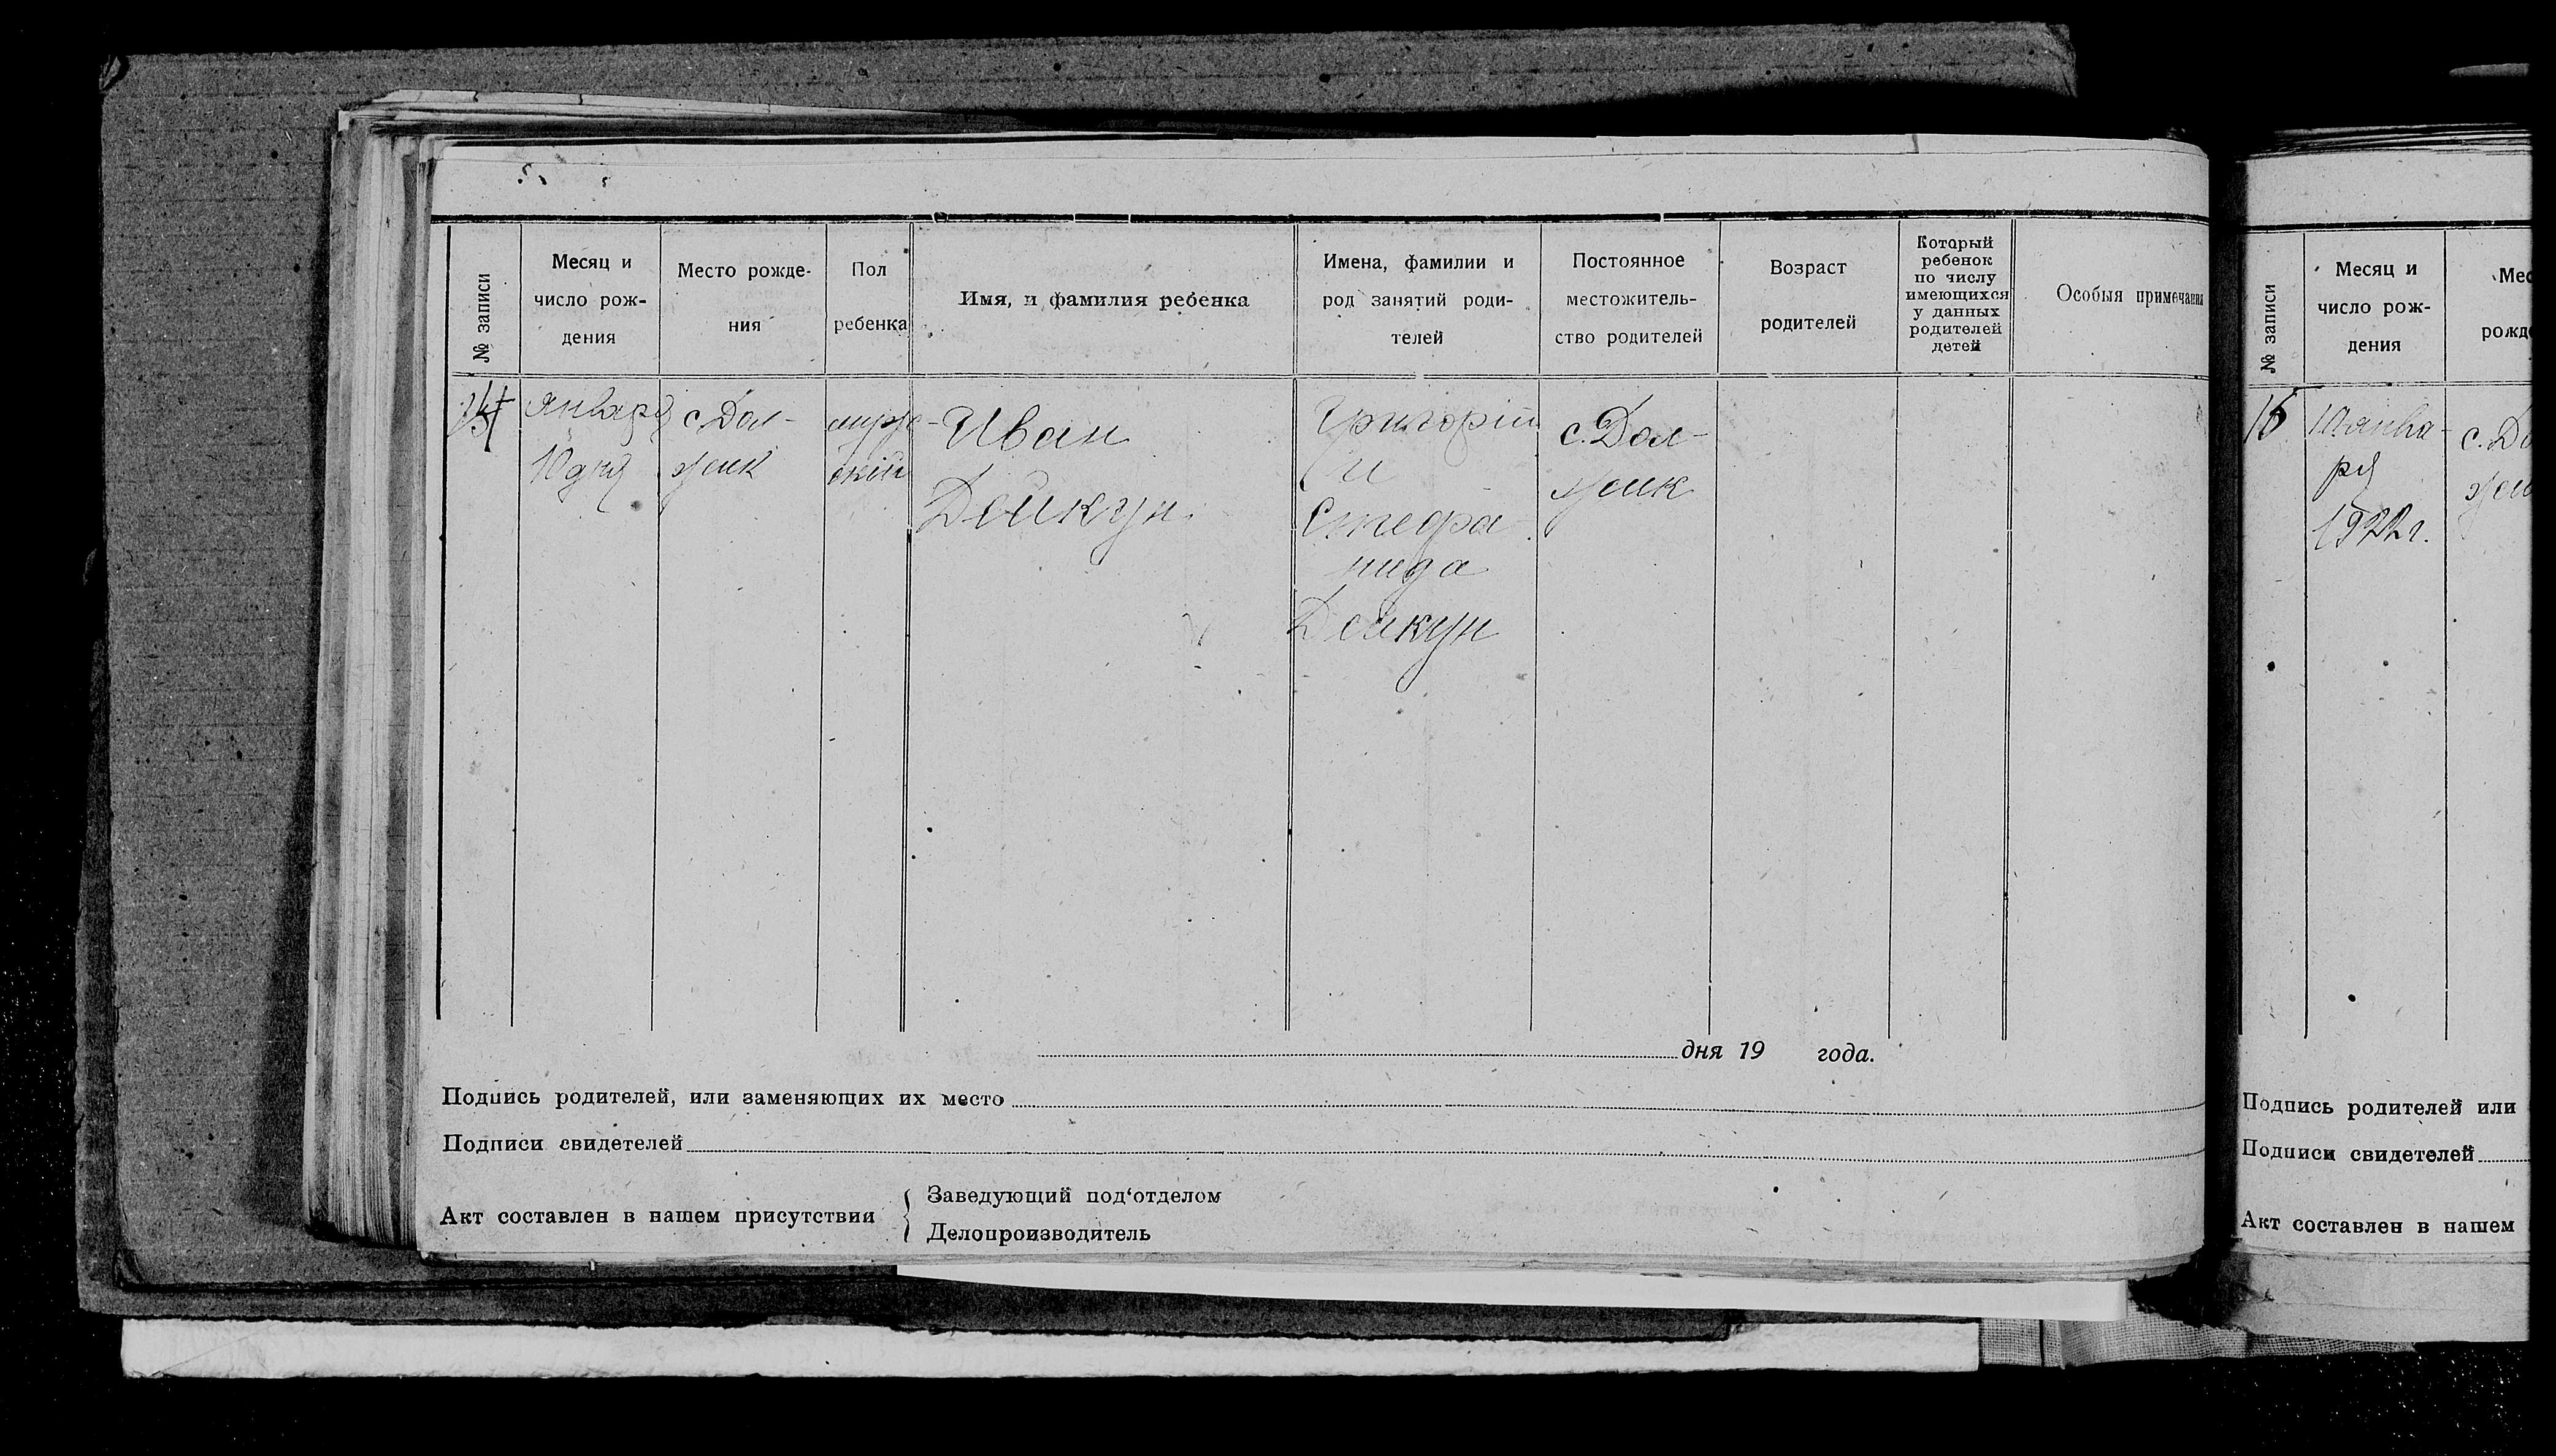 № записи
Месяц и
число рож-
дения
Место рожде-
ния
Пол
ребенка
Имя, и фамилия ребенка
Имена, фамилии и
род занятий роди-
телей
Постоянное
местожитель-
ство родителей
Возраст
родителей
Который
ребенок
по числу
имеющихся
у данных
родителей
детей
Особыя примечания
января
10 дня
с. Дол-
жик
мужс-
кій
Иван
Дейкун
Григорій
и
Стефа
нида
Дейкун
с. Дол-
жик
дня 19 года.
Подпись родителей, или заменяющих их место
Подписи свидетелей
Акт составлен в нашем присутствии
Заведующий под‘отделом
Делопроизводитель
№ записи
Месяц и
число рож-
дения
Мес
рожде
10 янва-
ря
1922 г.
с. До
жи
Подпись родителей или
Подписи свидетелей
Акт составлен в нашем